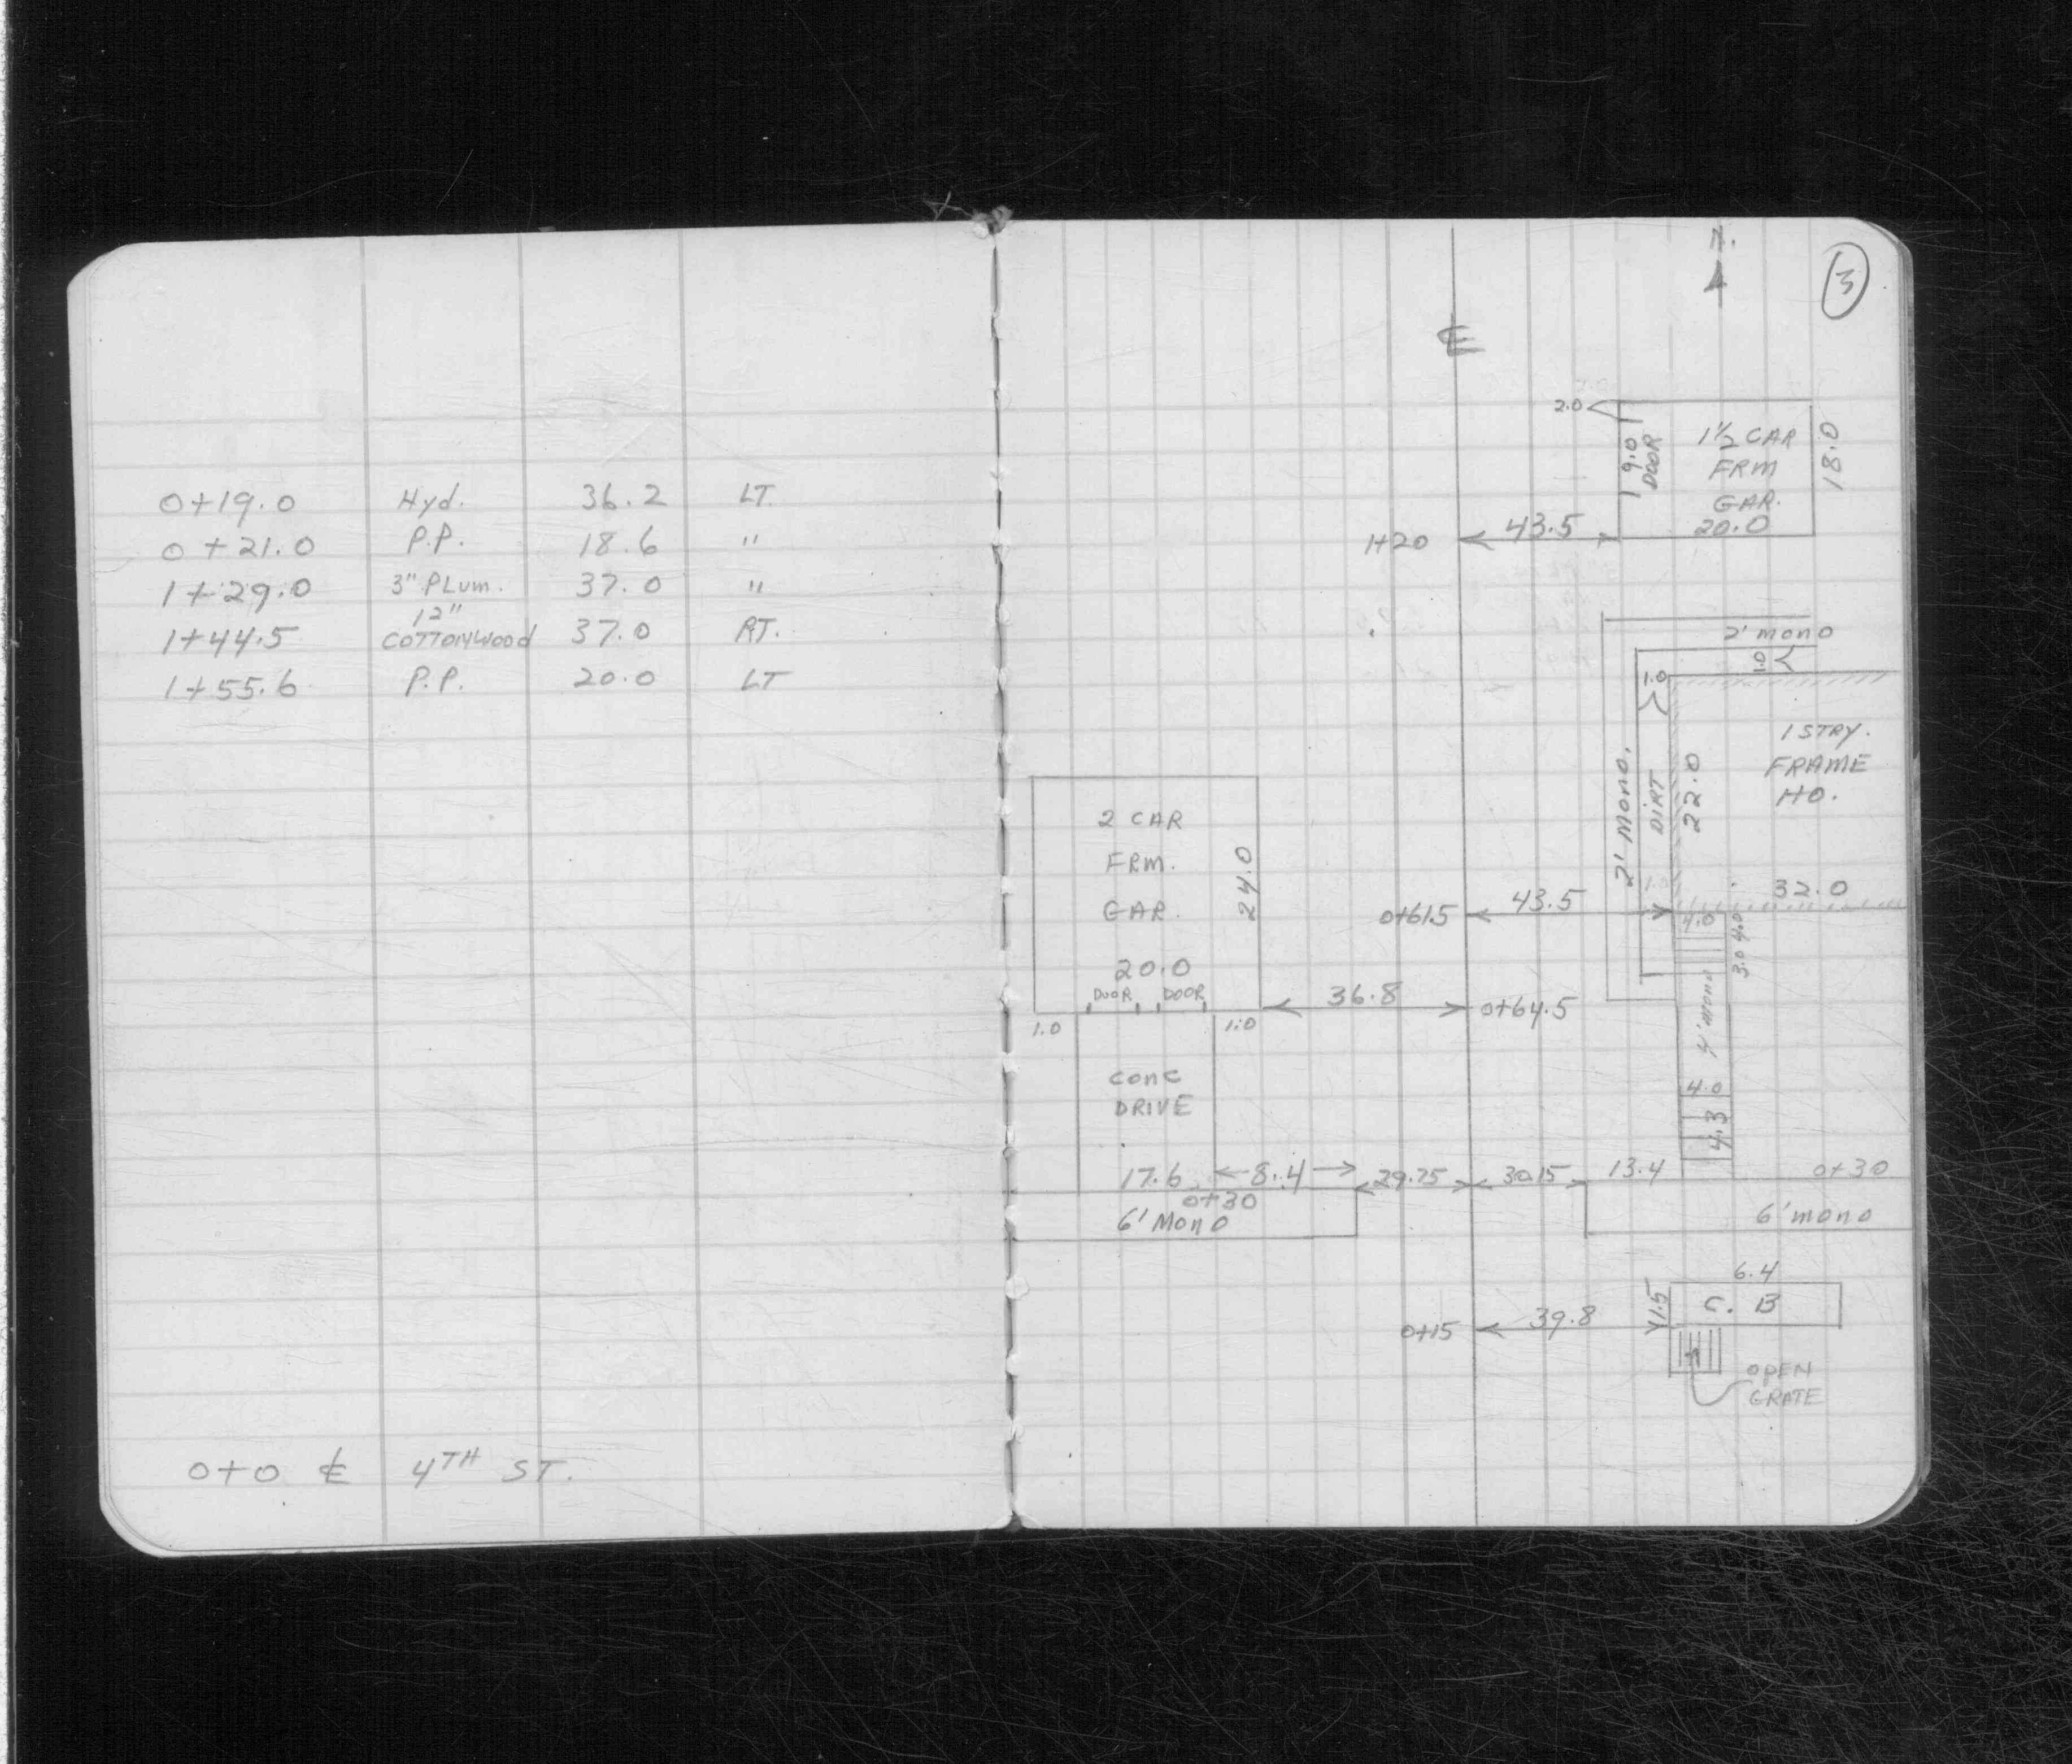 0+19.0 Hyd. 36.2 LT.
0+21.0 P.P. 18.6 "
1+29.0 3" PLum. 37.0 "
12"
1+44.5 COTTONWOOD 37.0 RT.
1+55.6 P.P. 20.0 LT
0+0 ℄ 4TH ST.
3
N.
℄
2.0
9.0
DOOR
1½ CAR
FRM
GAR.
20.0
18.0
1+20 43.5
2' mono
1.0
1.0
1 STRY.
FRAME
HO.
2' Mono.
DIRT
22.0
2 CAR
FRM.
GAR.
24.0
20.0
DOOR DOOR
1.0 1.0
0+61.5 43.5
32.0
4.0
4.0
3.0
36.8 0+64.5
4' mono
4.0
4.3
CONC
DRIVE
17.6 8.4 29.75 30.15 13.4 0+30
0+30
6' Mono
6' mono
6.4
1.5
C. B
0+15 39.8
OPEN
GRATE